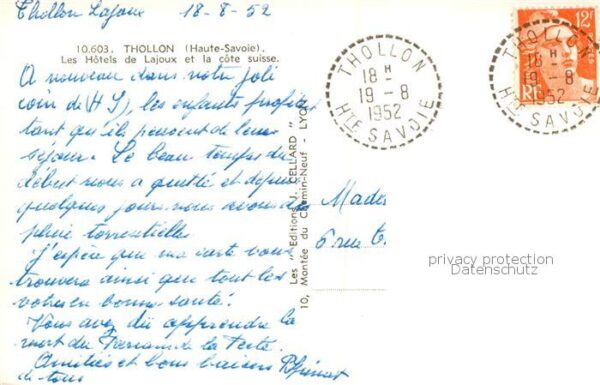 Thollon Lajoux 18-8-52
10.603. THOLLON (Haute-Savoie).
Les Hôtels de Lajoux et la côte suisse.
A nouveau dans notre joli
coin de (H S), les enfants profitent
tant qu'ils peuvent de leur
séjour. Le beau temps du
début nous a quitté et depuis
quelques jours nous avons de la
pluie torrentielle.
J'espère que ma carte vous
trouvera ainsi que tout les
votres en bonne santé.
Vous avez dû apprendre la
mort du de la
Amitiés et bons baisers
de tous
Les "Editions J. CELLARD"
10, Montée du Chemin-Neuf - LYON
THOLLON
18 H
19-8
1952
HTE SAVOIE
THOLLON
18 H
19-8
1952
HTE SAVOIE
12F
RF
Mada
6 rue
privacy protection
Datenschutz